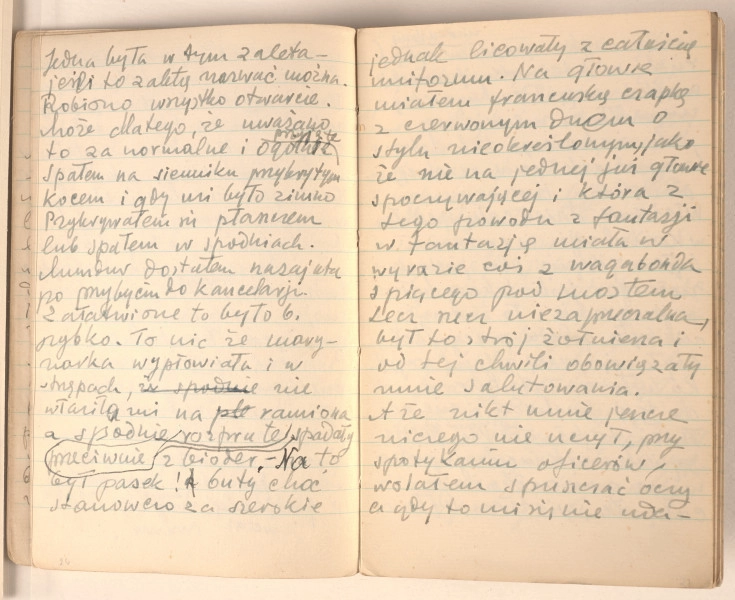 Jedna była w tym zaleta –
jeśli to zaletą nazwać można.
Robiono wszystko otwarcie.
Może dlatego, że uważano
przyjęte
to za normalne i ogólnie
spałem na sienniku przykrytym
kocem i gdy mi było zimno
przykrywałem się płaszczem
lub spałem w spodniach.
Mundur dostałem nazajutrz
po przybyciu do kancelarji.
Załatwione to było b.
szybko. To nic że mary-
narka wypłowiała i w
strzępach, że spodnie nie
właziła mi na ple ramiona
a spodnie rozprute spadały
przeciwnie z bioder. – Na to
był pasek! A buty choć
stanowczo za szerokie
jednak licowały z całością
uniformu. Na głowie
miałem francuską czapkę
z czerwonym dnem o
stylu nieokreślonym, jako
że nie na jednej już głowie
spoczywającej i która z
tego powodu z fantazji
w fantazję miała w
wyrazie coś z wagabonda
śpiącego pod mostem
Lecz niezaprzeczalnie,
był to strój żołnierza i
od tej chwili obowiązały
mnie salutowania.
A że nikt mnie jeszcze
niczego nie uczył, przy
spotykaniu oficerów,
wolałem spuszczać oczy
a gdy to mi się nie uda-
24